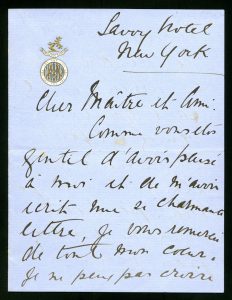 Savoy Hotel
New York
Cher Maître et Ami.
Comme vous êtes
gentil d'avoir pensé
à moi et de m'avoir
écrit une si charmante
lettre, je vous remercie
de tout mon coeur.
Je ne peux pas croire